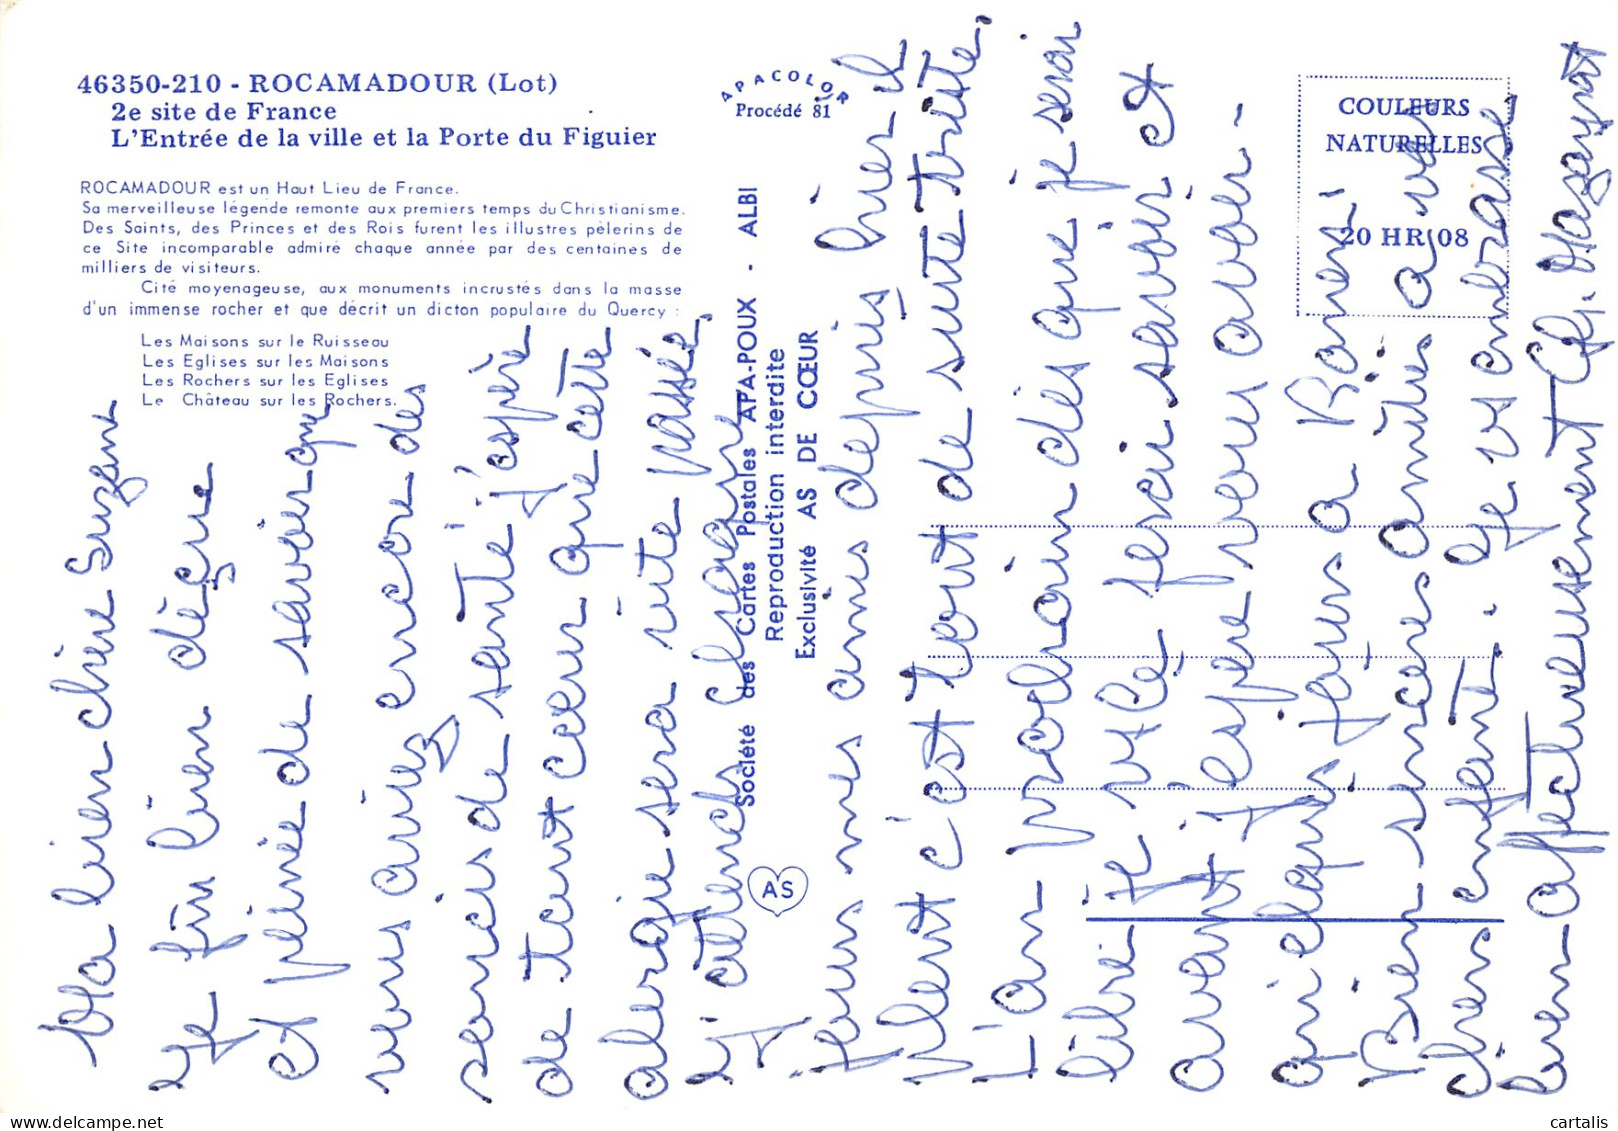 46350-210 - ROCAMADOUR (Lot)
2e site de France
L'Entrée de la ville et la Porte du Figuier
ROCAMADOUR est un Haut Lieu de France.
Sa merveilleuse légende remonte aux premiers temps du Christianisme.
Des Saints, des Princes et des Rois furent les illustres pèlerins de
ce Site incomparable admiré chaque année par des centaines de
milliers de visiteurs.
Cité moyenageuse, aux monuments incrustés dans la masse
d'un immense rocher et que décrit un dicton populaire du Quercy :
Les Maisons sur le Ruisseau
Les Eglises sur les Maisons
Les Rochers sur les Eglises
Le Château sur les Rochers.
APACOLOR
Procédé 81
COULEURS
NATURELLES
20 HR 08
Société des Cartes Postales APA-POUX - ALBI
Reproduction interdite
Exclusivité AS DE CŒUR
AS
Ma bien chère Suzanne
Je fus bien déçue
et peinée de savoir que
vous aviez encore des
soucis de santé j'espère
de tout coeur que cette
alergie sera vite passée.
J'attends
tous mes amis depuis hier il
vient c'est tout de suite triste.
L'an prochain dès que je serai
libre je vs le ferai savoir et
avant j'espère vous avoir -
quelques jours a
Bien sincères amitiés a vos
chers enfants. Je vs embrasse
bien affectueusement
cartalis
delcampe.net